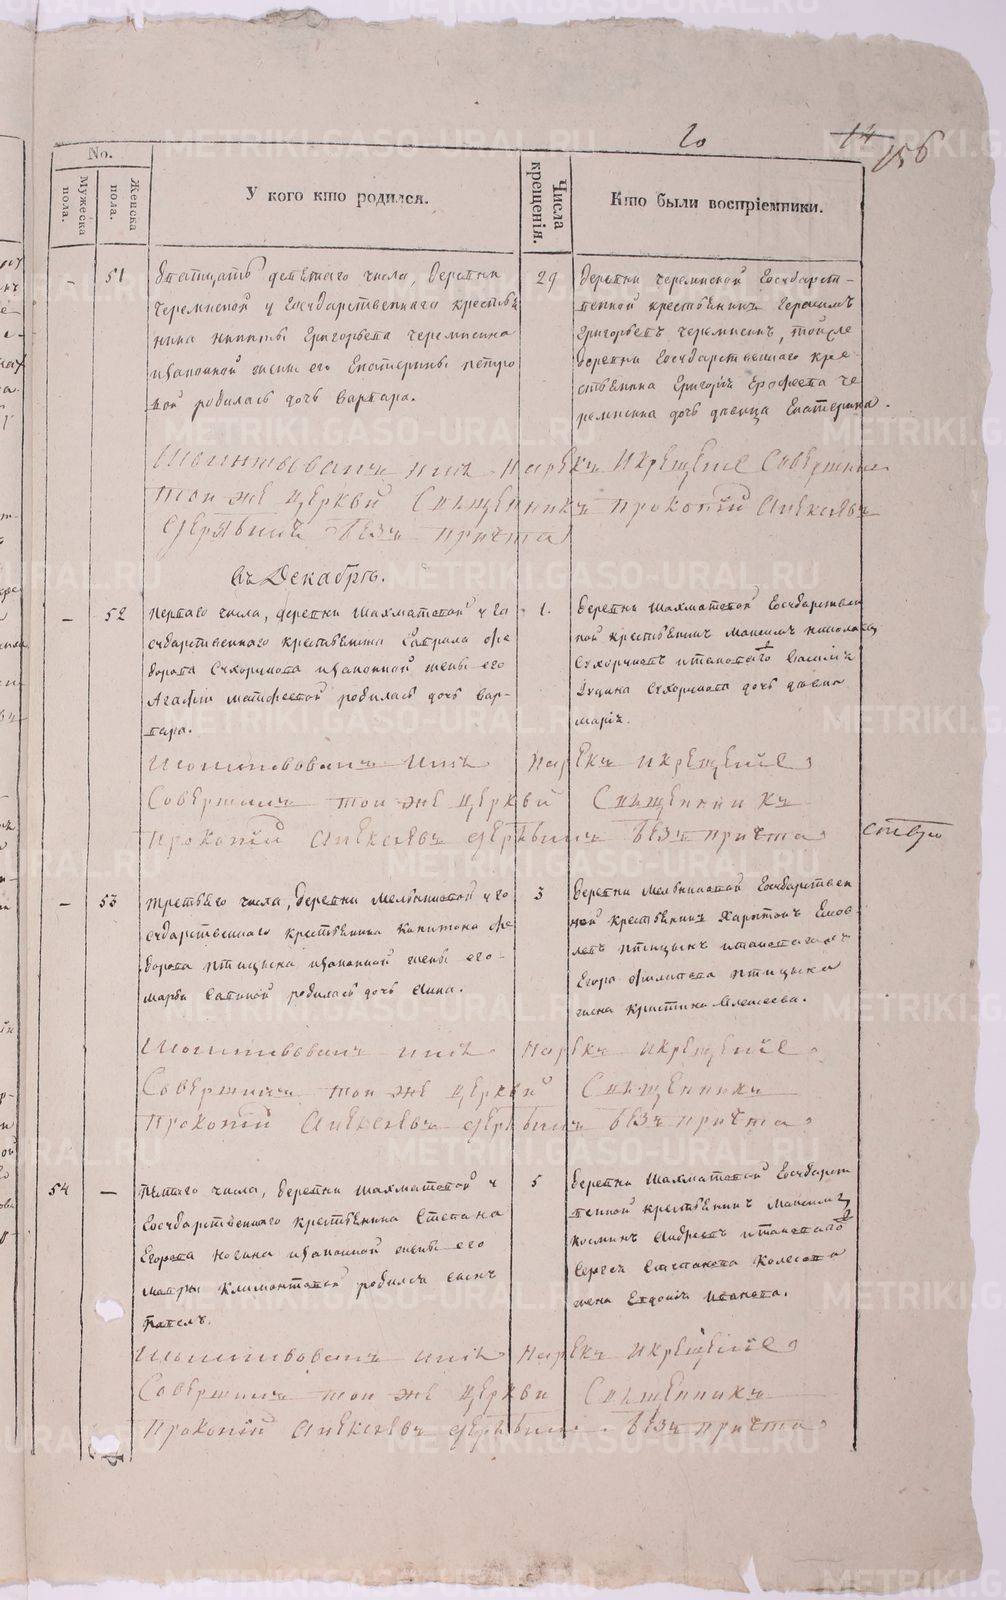 20
14
156
No.
Мужеска пола.
Женска пола.
У кого кто родился.
Числа крещенія.
Кто были воспріемники.
- 51
дватцать девятаго числа, деревни
Черемиской у Государственнаго крестья
нина Никиты Григорьева Черемисина
изаконной жены его Екатерины Петро
вой родилась дочь Варвара.
29
деревни Черемиской Государст-
венной крестьянинъ Герасимъ
Григорьевъ Черемисинъ, тойже
деревни Государственнаго кре-
стьянина Григорія Ерофеева Че
ремисина дочь девица Екатерина.
Имолитвовалъ имя нарекъ икрещение совершилъ
той же церкви священникъ Прокопій Алексѣевъ
Дерябинъ безъ причта
въ Декабрѣ.
- 52
перваго числа, деревни Шахматовой у Го
сударственнаго крестьянина Гаврила Фе
дорова Сухорукова изаконной жены его
Агафіи Матфеевой родилась дочь Вар-
вара.
1.
деревни Шахматовой Государствен
ной крестьянинъ Максимъ Николаевъ
Сухоруковъ итаковаго Василія
Лукина Сухорукова дочь девица
Марія.
Имолитвовалъ имя нарекъ икрещение
совершилъ той же церкви священникъ
Прокопій Алексѣевъ Дерябинъ безъ причта
- 53
третьяго числа, деревни Мельниковой у го
сударственнаго крестьянина Капитона Фе
дорова Птицына изаконной жены его
Марьи Савиной родилась дочь Анна.
3
деревни Мельниковой Государствен
ной крестьянинъ Харитонъ
Птицынъ итаковагожъ
Егора Филипова Птицына
жена Кристина Алексеева.
Имолитвовалъ имя нарекъ икрещение
совершилъ той же церкви священникъ
Прокопій Алексѣевъ Дерябинъ безъ причта
54 -
пятаго числа, деревни Шахматовой у
Государственнаго крестьянина Степана
Егорова изаконной жены его
Матроны Климонтовой родился сынъ
Павелъ.
5
деревни Шахматовой Государст
венной крестьянинъ Максимъ
Косминъ Андреевъ итаковаго
Сергея Степанова Колесова
жена Евдокія Иванова.
Имолитвовалъ имя нарекъ икрещение
совершилъ той же церкви священникъ
Прокопій Алексѣевъ Дерябинъ безъ причта
METRIKI.GASO-URAL.RU